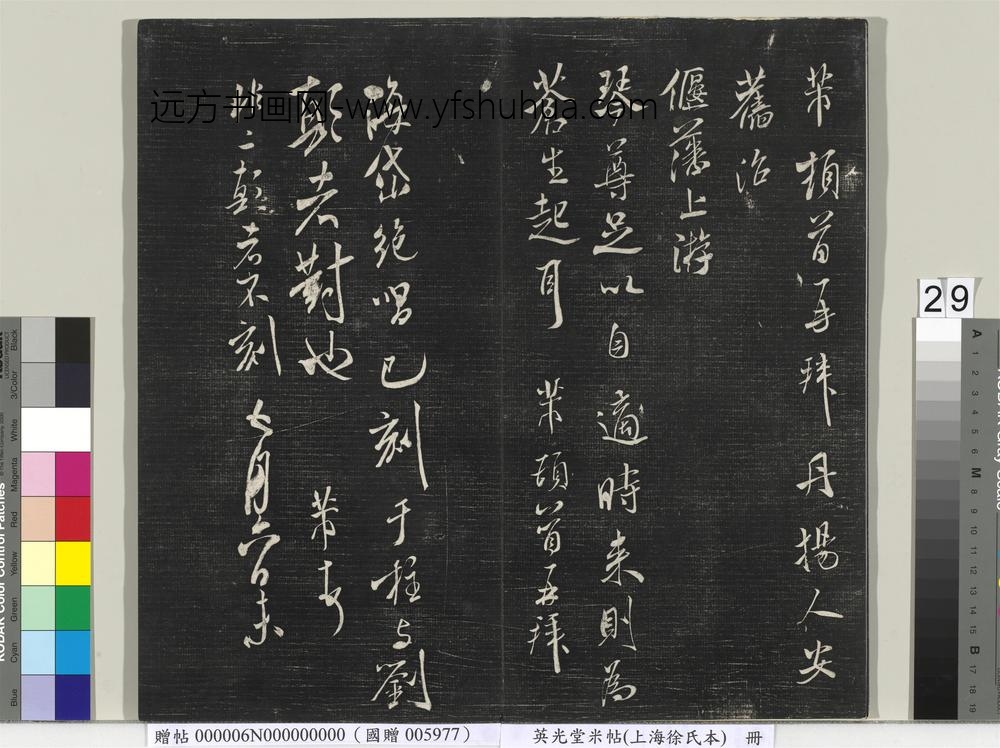 芾頓首再拜丹揚人安
舊治
偃藩上游
琴尊足以自適時来則為
蒼生起耳 芾頓首再拜
海岱絶唱已刻于柱与劉
彭老對也 芾
彭老不刻 七月六日
远方书画网-www.yfshuhua.com
29
贈帖 000006N000000000（國贈 005977）
英光堂米帖(上海徐氏本) 冊
KODAK Color Control Patches
Blue
Cyan
Green
Yellow
Red
Magenta
White
3/Color
Black
A
1
2
3
4
5
6
M
8
9
10
11
12
13
14
15
B
17
18
19